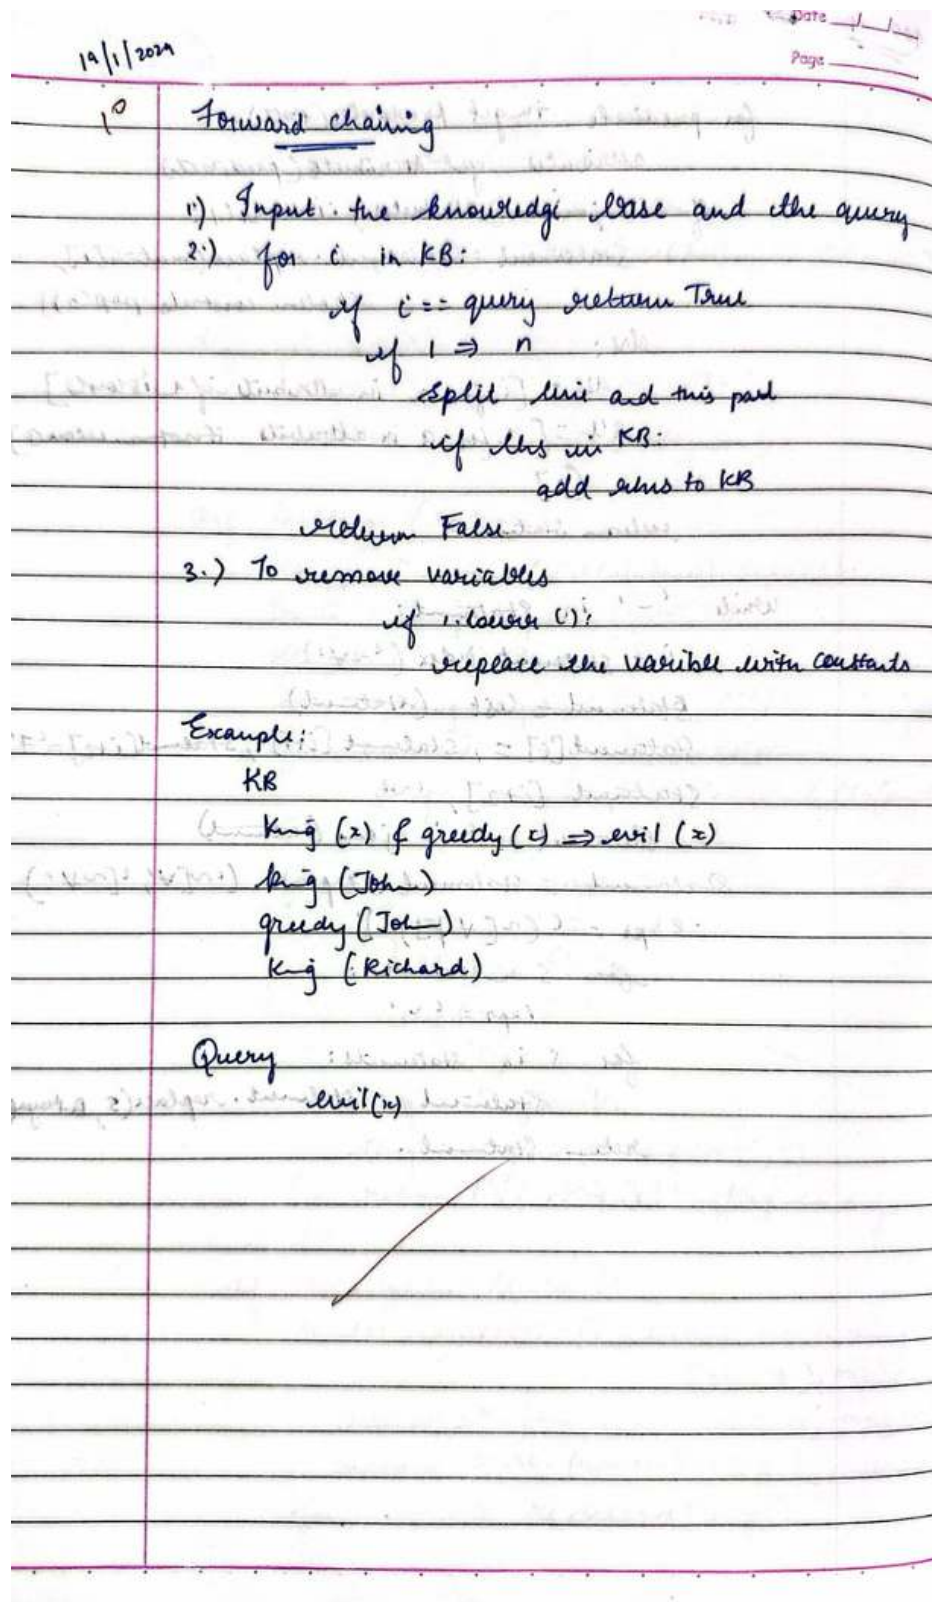 Date
Page
19/1/2024
10
Forward chaining
1) Input the knowledge base and the query
2.) for i in KB:
if i == query return True
if 1 ⇒ n
split line and this part
if lhs in KB:
add rhs to KB
return False
3.) To remove variables
if i.lower():
replace the varible with constants
Example:
KB
King (x) & greedy (x) ⇒ evil (x)
king (John)
greedy (John)
King (Richard)
Query
evil(x)